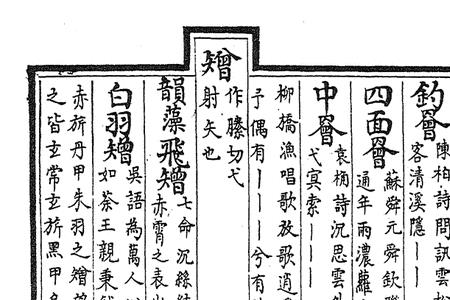 釣罾
陳柏詩問訊雲松
客清溪隱一一
四面罾
蘇舜元舜欽聯
通年雨濃蘿
中罾
袁桷詩沉思雲
弋冥索一一
柳橋漁唱歌放歌逍
予偶有一一一一兮有
矰
作滕切弋
射矢也
韻藻飛矰
七命沉絲結
赤霄之表出
白羽矰
吳語為萬人以
如荼王親秉
赤旂丹甲朱羽之矰
之皆玄常玄旂黑甲